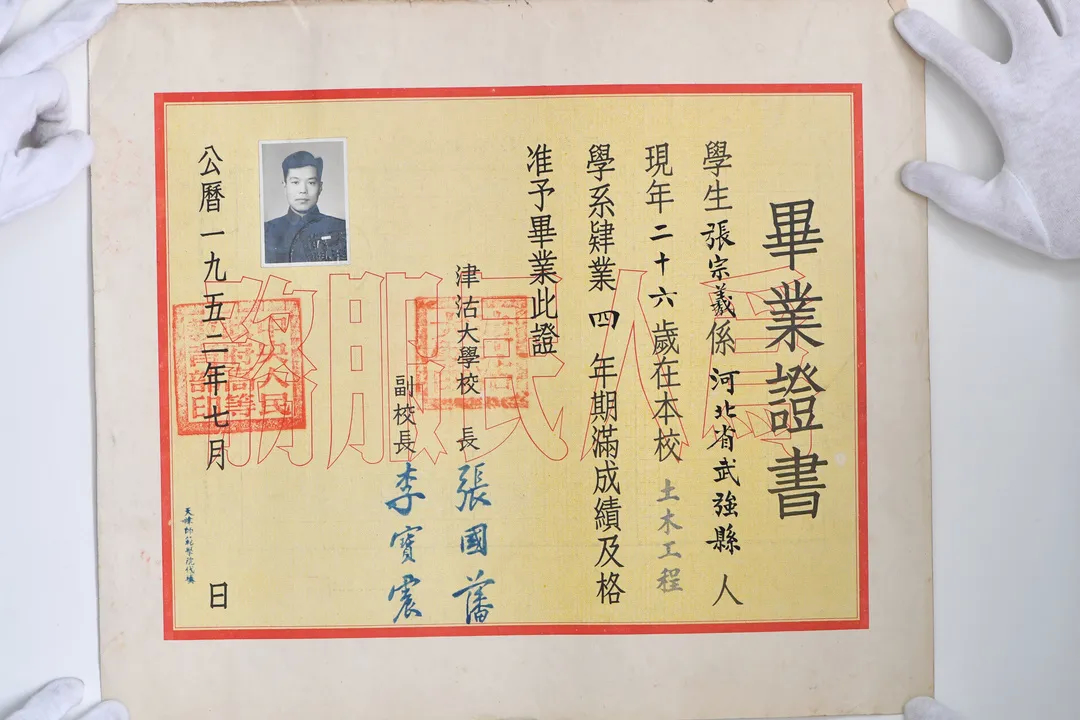 畢業證書
學生張宗義係河北省武強縣人
現年二十六歲在本校土木工程
學系肄業四年期滿成績及格
准予畢業此證
津沽大學校長張國藩
副校長李寶震
公曆一九五二年七月日
天津師範學院代填
為人民服務